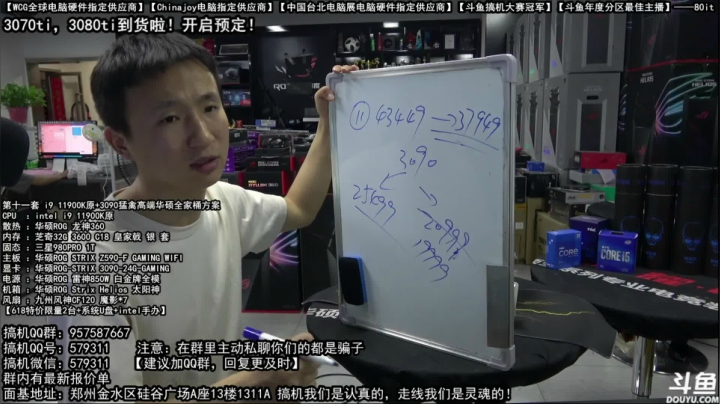 【WCG全球电脑硬件指定供应商】【Chinajoy电脑指定供应商】【中国台北电脑展电脑硬件指定供应商】【斗鱼搞机大赛冠军】【斗鱼年度分区最佳主播】——80it
3070ti，3080ti到货啦！开启预定！
⑪ 43449 → 37949
3090
25699
20999
19999
第十一套 i9 11900K原+3090猛禽高端华硕全家桶方案
CPU ：intel i9 11900K原
散热 ：华硕ROG 龙神360
内存 ：芝奇32G 3600 C18 皇家戟 银 套
固态 ：三星980PRO 1T
主板 ：华硕ROG STRIX Z590-F GAMING WIFI
显卡 ：华硕ROG-STRIX 3090-24G-GAMING
电源 ：华硕ROG 雷神850W 白金牌全模
机箱 ：华硕ROG Strix Helios 太阳神
风扇 ：九州风神CF120 魔影*7
【618特价限量2台+系统U盘+intel手办】
搞机QQ群：957587667
搞机QQ号：579311 注意：在群里主动私聊你们的都是骗子
搞机微信：579311 【建议加QQ群，回复更及时】
群内有最新报价单
面基地址：郑州金水区硅谷广场A座13楼1311A 搞机我们是认真的，走线我们是灵魂的！
CORE i5
斗鱼
DOUYU.COM